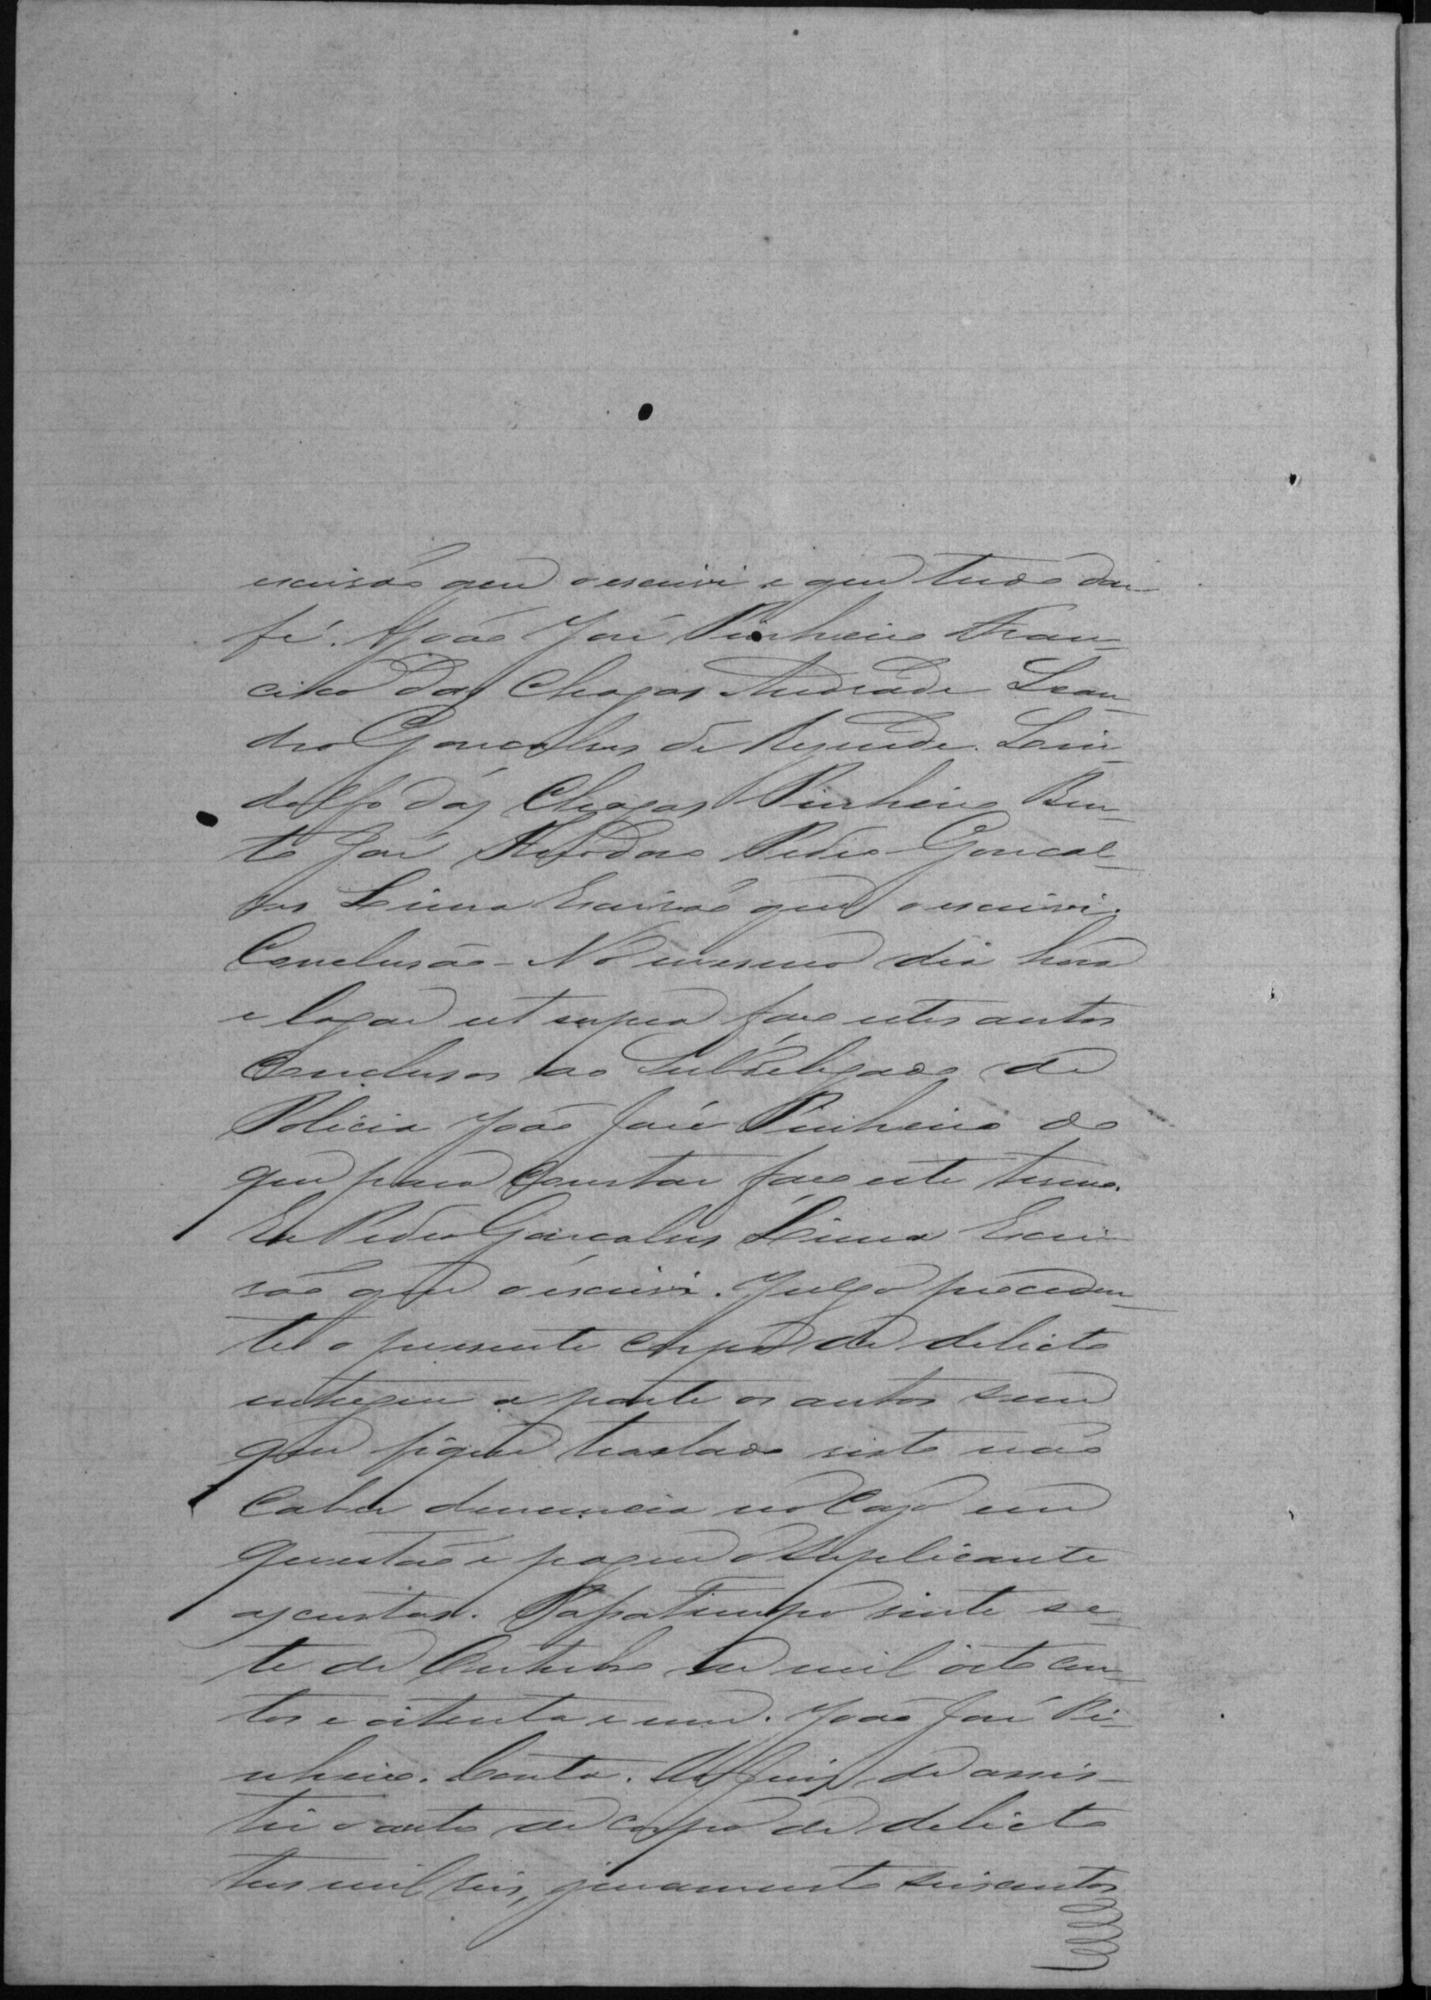 escrivão que o escrivi e que tudo dou
fé. João José Pinheiro Fran-
cisco das Chagas Andrade Lean-
dro Goncalves de Resende. Lin-
dolfo das Chagas Pinheiro Ben-
to José Pedro Goncal-
ves Lima Escrivão que o escrivi.
Conclusão - No mesmo dia hora
e logar ut supra faço estes autos
Conclusos ao Subdelegado de
Policia João José Pinheiro do
que para constar faço este termo.
Eu Pedro Goncalves Lima Escri-
vão que o escrivi. Julgo proceden-
te o presente corpo de delicto
entregue a parte os autos sem
que fique traslado visto não
caber denuncia no caso em
questão e pague o suplicante
as custas. Papatimpo vinte se-
te de Outubro de mil oito cen-
tos e oitenta e um. João José Pi-
nheiro. Conta. Ao Juiz de assis-
tir o auto de corpo de delicto
tres mil reis, juramento seiscentos